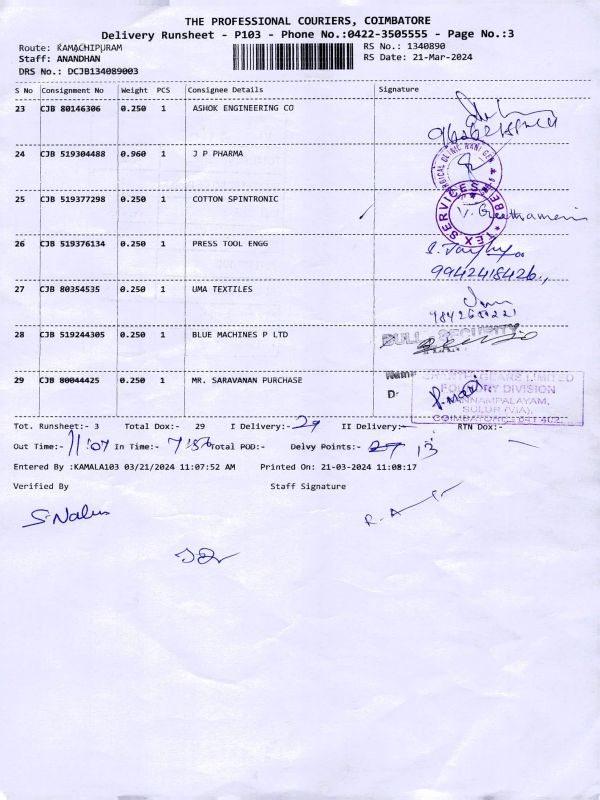 THE PROFESSIONAL COURIERS, COIMBATORE
Delivery Runsheet - P103 - Phone No.:0422-3505555 - Page No.:3
Route: KAMACHIPURAM
RS No.: 1340890
Staff: ANANDHAN
RS Date: 21-Mar-2024
DRS No.: DCJB134089003
S No Consignment No Weight PCS Consignee Details Signature
23 CJB 80146306 0.250 1 ASHOK ENGINEERING CO
24 CJB 519304488 0.960 1 J P PHARMA
25 CJB 519377298 0.250 1 COTTON SPINTRONIC
TEX SERVICES
26 CJB 519376134 0.250 1 PRESS TOOL ENGG
9942418426.,
27 CJB 80354535 0.250 1 UMA TEXTILES
28 CJB 519244305 0.250 1 BLUE MACHINES P LTD
BULL SECURITY
29 CJB 80044425 0.250 1 MR. SARAVANAN PURCHASE
Name
GEARS LIMITED
FOUNDRY DIVISION
SULUR (VIA),
COIMBATORE - 641 402.
P. Mari
Tot. Runsheet:- 3 Total Dox:- 29 I Delivery:- 29 II Delivery:- RTN Dox:-
Out Time:- 11:07 In Time:- Total POD:- Delvy Points:- 27 13
Entered By :KAMALA103 03/21/2024 11:07:52 AM Printed On: 21-03-2024 11:08:17
Verified By Staff Signature